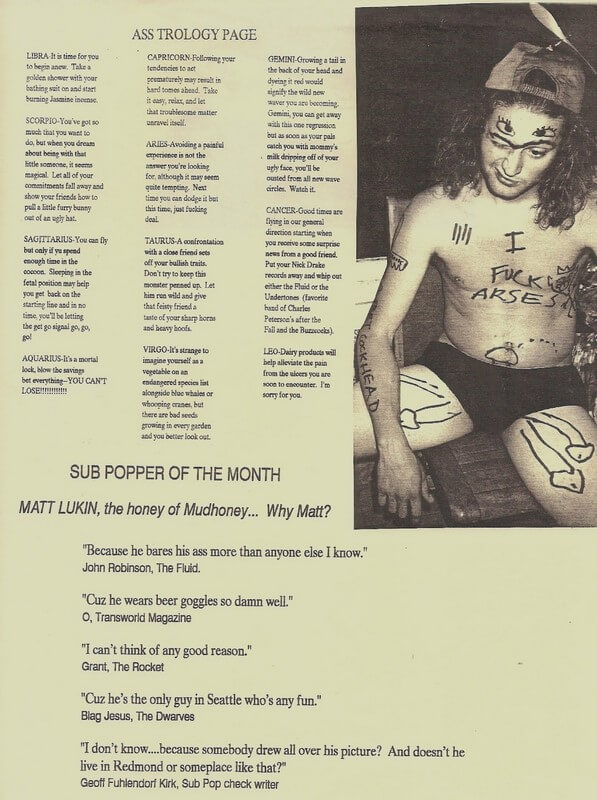 ASS TROLOGY PAGE
LIBRA-It is time for you
to begin anew. Take a
golden shower with your
bathing suit on and start
burning Jasmine incense.
SCORPIO-You've got so
much that you want to
do, but when you dream
about being with that
little someone, it seems
magical. Let all of your
commitments fall away and
show your friends how to
pull a little furry bunny
out of an ugly hat.
SAGITTARIUS-You can fly
but only if yu spend
enough time in the
cocoon. Sleeping in the
fetal position may help
you get back on the
starting line and in no
time, you'll be letting
the get go signal go, go,
go!
AQUARIUS-It's a mortal
lock, blow the savings
bet everything--YOU CAN'T
LOSE!!!!!!!!!!!!
CAPRICORN-Following your
tendencies to act
prematurely may result in
hard times ahead. Take
it easy, relax, and let
that troublesome matter
unravel itself.
ARIES-Avoiding a painful
experience is not the
answer you're looking
for, although it may seem
quite tempting. Next
time you can dodge it but
this time, just fucking
deal.
TAURUS-A confrontation
with a close friend sets
off your bullish traits.
Don't try to keep this
monster penned up. Let
him run wild and give
that feisty friend a
taste of your sharp horns
and heavy hoofs.
VIRGO-It's strange to
imagine yourself as a
vegetable on an
endangered species list
alongside blue whales or
whooping cranes, but
there are bad seeds
growing in every garden
and you better look out.
GEMINI-Growing a tail in
the back of your head and
dyeing it red would
signify the wild new
waver you are becoming.
Gemini, you can get away
with this one regression
but as soon as your pals
catch you with mommy's
milk dripping off of your
ugly face, you'll be
ousted from all new wave
circles. Watch it.
CANCER-Good times are
flying in our general
direction starting when
you receive some surprise
news from a good friend.
Put your Nick Drake
records away and whip out
either the Fluid or the
Undertones (favorite
band of Charles
Peterson's after the
Fall and the Buzzcocks).
LEO-Dairy products will
help alleviate the pain
from the ulcers you are
soon to encounter. I'm
sorry for you.
I
FUCK
ARSES
COCKHEAD
SUB POPPER OF THE MONTH
MATT LUKIN, the honey of Mudhoney... Why Matt?
"Because he bares his ass more than anyone else I know."
John Robinson, The Fluid.
"Cuz he wears beer goggles so damn well."
O, Transworld Magazine
"I can't think of any good reason."
Grant, The Rocket
"Cuz he's the only guy in Seattle who's any fun."
Blag Jesus, The Dwarves
"I don't know....because somebody drew all over his picture? And doesn't he
live in Redmond or someplace like that?"
Geoff Fuhlendorf Kirk, Sub Pop check writer